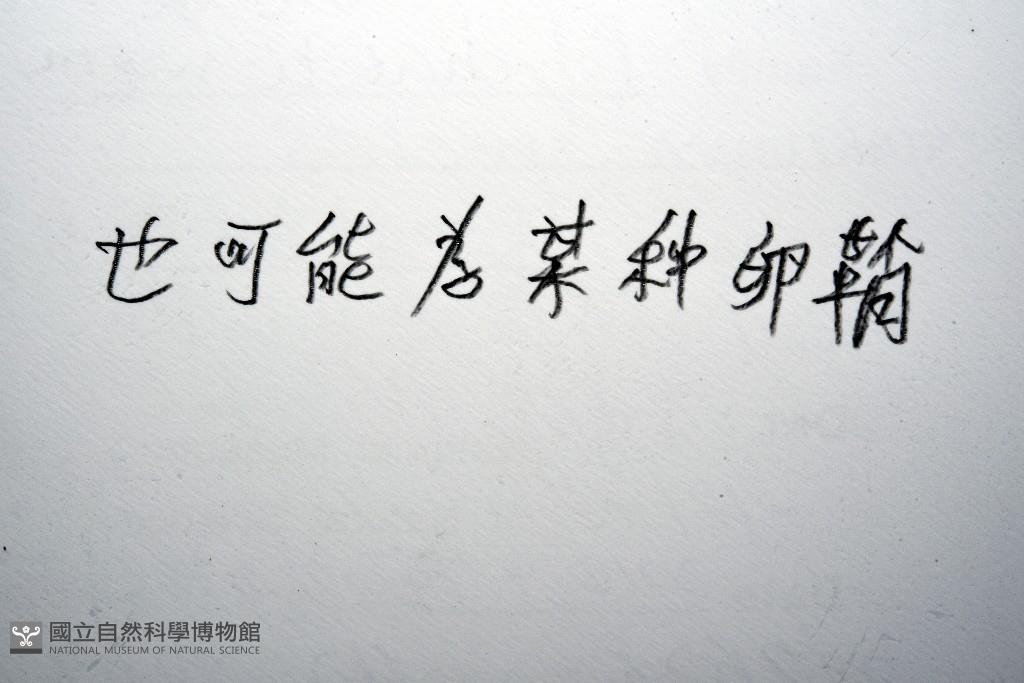 也可能为某种卵鞘
國立自然科學博物館
NATIONAL MUSEUM OF NATURAL SCIENCE